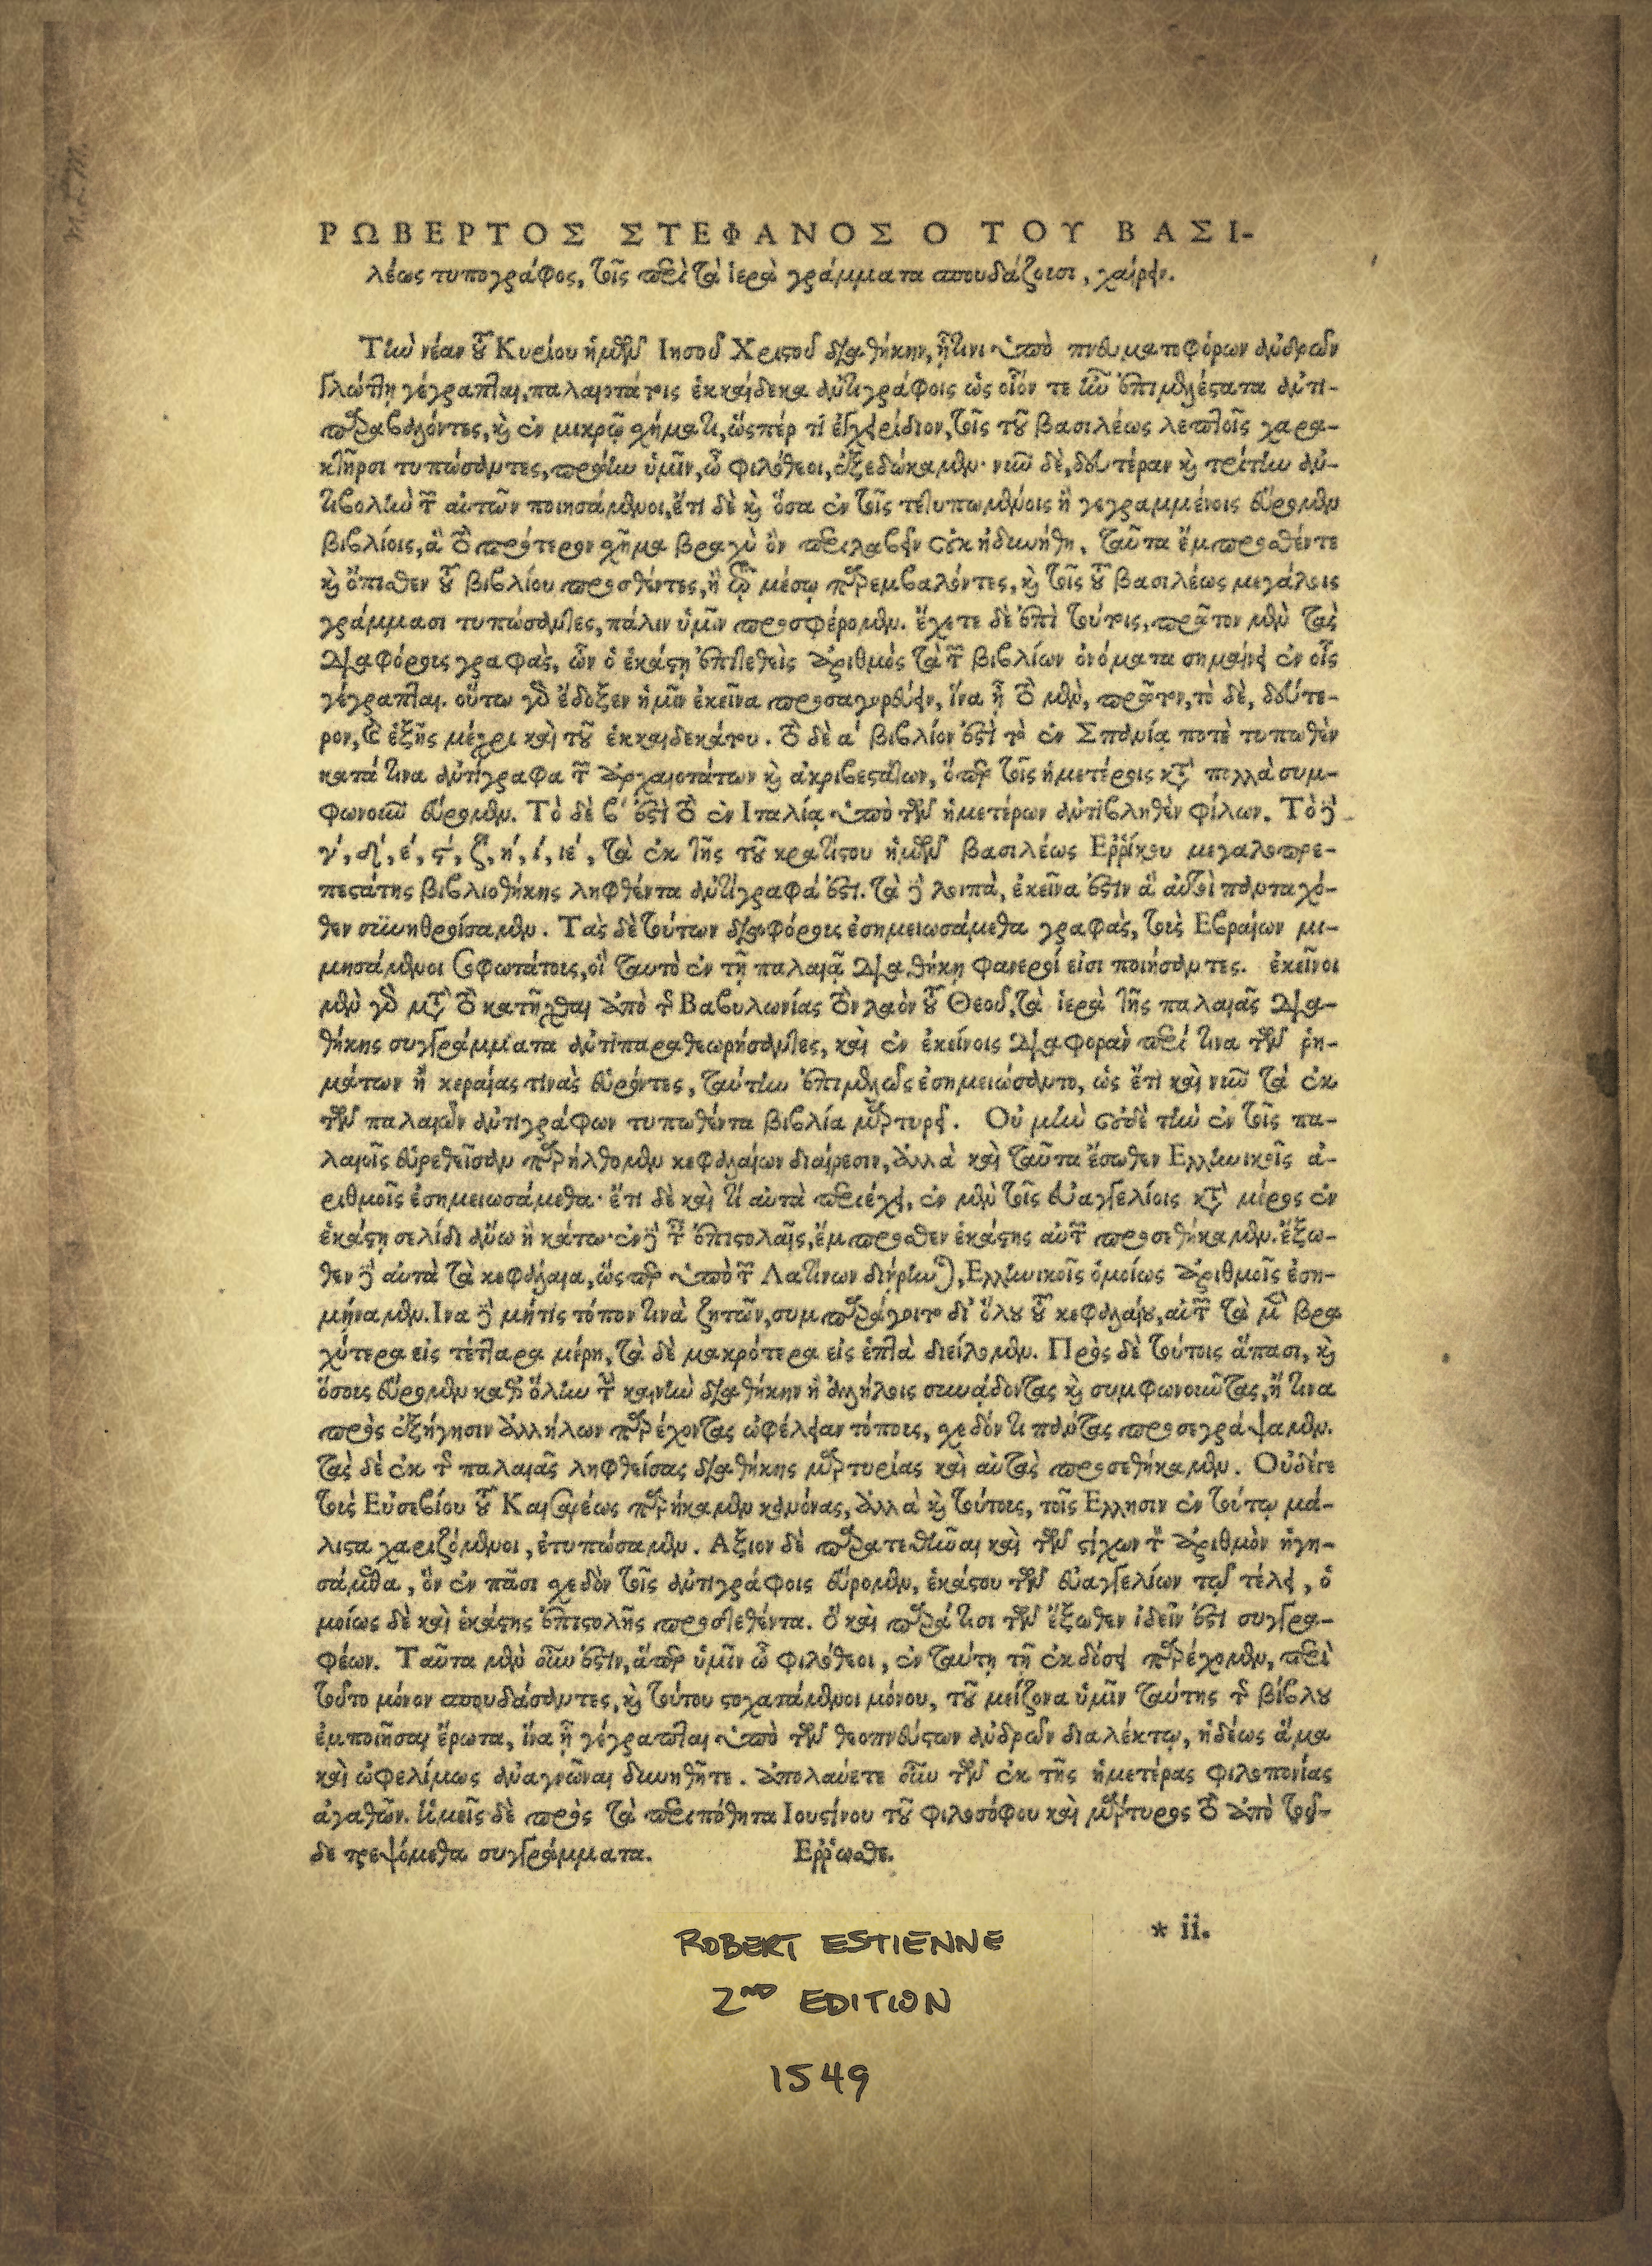 ΡΩΒΕΡΤΟΣ ΣΤΕΦΑΝΟΣ Ο ΤΟΥ ΒΑΣΙ-
λέως τυπογράφος, τοῖς περὶ τὰ ἱερὰ γράμματα σπουδάζουσι, χαίρειν.
Τὴν νέαν τοῦ Κυρίου ἡμῶν Ιησοῦ Χριστοῦ διαθήκην, ἥτινι ὑπὸ πνευματοφόρων ἀνδρῶν
γλώττῃ γέγραπται, παλαιοτάτοις ἑκκαίδεκα ἀντιγράφοις ὡς οἷόν τε ἦν ἐπιμελέστατα ἀντι-
παραβαλόντες, καὶ ἐν μικρῷ σχήματι, ὥσπερ τι ἐγχειρίδιον, τοῖς τοῦ βασιλέως λεπτοῖς χαρα-
κτῆρσι τυπώσαντες, πρώην ὑμῖν, ὦ φιλόθεοι, ἐξεδώκαμεν· νῦν δὲ, δευτέραν καὶ τρίτην ἀν-
τιβολὴν τῶν αὐτῶν ποιησάμενοι, ἔτι δὲ καὶ ὅσα ἐν τοῖς τετυπωμένοις ἢ γεγραμμένοις εὕρομεν
βιβλίοις, ἃ τὸ πρότερον σχῆμα βραχὺ ὂν περιλαβεῖν οὐκ ἠδυνήθη, ταῦτα ἔμπροσθέν τε
καὶ ὄπισθεν τοῦ βιβλίου προσθέντες, ἢ τῷ μέσῳ παρεμβαλόντες, καὶ τοῖς τοῦ βασιλέως μεγάλοις
γράμμασι τυπώσαντες, πάλιν ὑμῖν προσφέρομεν. ἔχετε δὲ ἐπὶ τούτοις, πρῶτον μὲν τὰς
διαφόρους γραφὰς, ὧν ὁ ἑκάστῃ ἐπιτεθεὶς ἀριθμὸς τὰ τῶν βιβλίων ὀνόματα σημαίνει ἐν οἷς
γέγραπται. οὕτω γὰρ ἔδοξεν ἡμῖν ἐκεῖνα προσαγορεύειν, ἵνα ᾖ τὸ μὲν, πρῶτον, τὸ δὲ, δεύτε-
ρον, καὶ ἑξῆς μέχρι καὶ τοῦ ἑκκαιδεκάτου. τὸ δὲ α΄ βιβλίον ἐστὶ τὸ ἐν Σπανίᾳ ποτὲ τυπωθὲν
κατά τινα ἀντίγραφα τῶν ἀρχαιοτάτων καὶ ἀκριβεστάτων, ὅπερ τοῖς ἡμετέροις κατὰ πολλὰ συμ-
φωνοῦν εὕρομεν. Τὸ δὲ β΄ ἐστὶ τὸ ἐν Ιταλίᾳ ὑπὸ τῶν ἡμετέρων ἀντιβληθὲν φίλων. Τὸ δὲ
γ΄, δ΄, ε΄, ϛ΄, ζ΄, η΄, ι΄, ιε΄, τὰ ἐκ τῆς τοῦ κρατίστου ἡμῶν βασιλέως Ερρίκου μεγαλοπρε-
πεστάτης βιβλιοθήκης ληφθέντα ἀντίγραφά ἐστι. τὰ δὲ λοιπὰ, ἐκεῖνα ἐστὶν ἃ αὐτοὶ πανταχό-
θεν συνηθροίσαμεν. Τὰς δὲ τούτων διαφόρους ἐσημειωσάμεθα γραφὰς, τοὺς Εβραίων μι-
μησάμενοι σοφωτάτους, οἳ ταυτὸ ἐν τῇ παλαιᾷ διαθήκῃ φανεροί εἰσι ποιήσαντες. ἐκεῖνοι
μὲν γὰρ μετὰ τὸ κατῆχθαι ἀπὸ τῆς Βαβυλωνίας τὸν λαὸν τοῦ Θεοῦ, τὰ ἱερὰ τῆς παλαιᾶς δια-
θήκης συγγράμματα ἀντιπαραθεωρήσαντες, καὶ ἐν ἐκείνοις διαφορὰν περί τινα τῶν ῥη-
μάτων ἢ κεραίας τινὰς εὑρόντες, ταύτην ἐπιμελῶς ἐσημειώσαντο, ὡς ἔτι καὶ νῦν τὰ ἐκ
τῶν παλαιῶν ἀντιγράφων τυπωθέντα βιβλία μαρτυρεῖ. Οὐ μὴν οὐδὲ τὴν ἐν τοῖς πα-
λαιοῖς εὑρεθεῖσαν παρήλθομεν κεφαλαίων διαίρεσιν, ἀλλὰ καὶ ταῦτα ἔσωθεν Ελληνικοῖς ἀ-
ριθμοῖς ἐσημειωσάμεθα· ἔτι δὲ καὶ τί αὐτὰ περιέχει, ἐν μὲν τοῖς εὐαγγελίοις κατὰ μέρος ἐν
ἑκάστῃ σελίδι ἄνω ἢ κάτω· ἐν δὲ ταῖς ἐπιστολαῖς, ἔμπροσθεν ἑκάστης αὐτῶν προσεθήκαμεν. ἔξω-
θεν δὲ αὐτὰ τὰ κεφάλαια, ὥσπερ ὑπὸ τῶν Λατίνων διῄρηνται, Ελληνικοῖς ὁμοίως ἀριθμοῖς ἐση-
μήναμεν. Ινα δὲ μήτις τόπον τινὰ ζητῶν, συμπαράγοιτο δι᾽ ὅλου τοῦ κεφαλαίου, αὐτῶν τὰ μὲν βρα
χύτερα εἰς τέτταρα μέρη, τὰ δὲ μακρότερα εἰς ἑπτὰ διείλομεν. Πρὸς δὲ τούτοις ἅπασι, καὶ
ὅσους εὕρομεν καθ᾽ ὅλην τὴν καινὴν διαθήκην ἢ ἀλλήλοις συνᾴδοντας καὶ συμφωνοῦντας, ἤ τινα
πρὸς ἐξήγησιν ἀλλήλων παρέχοντας ὠφέλειαν τόπους, σχεδόν τι πάντας προσεγράψαμεν.
τὰς δὲ ἐκ τῆς παλαιᾶς ληφθείσας διαθήκης μαρτυρίας καὶ αὐτὰς προσεθήκαμεν. Οὐδέ γε
τοὺς Εὐσεβίου τοῦ Καισαρέως παρήκαμεν κανόνας, ἀλλὰ καὶ τούτοις, τοῖς Ελλησιν ἐν τούτῳ μά-
λιστα χαριζόμενοι, ἐτυπώσαμεν. Αξιον δὲ παρατεθῆναι καὶ τῶν στίχων τὸν ἀριθμὸν ἡγη-
σάμεθα, ὃν ἐν πᾶσι σχεδὸν τοῖς ἀντιγράφοις εὕρομεν, ἑκάστου τῶν εὐαγγελίων τῷ τέλει, ὁ
μοίως δὲ καὶ ἑκάστης ἐπιστολῆς προστεθέντα. ὃ καὶ παρά τισι τῶν ἔξωθεν ἰδεῖν ἐστι συγγρα-
φέων. Ταῦτα μὲν οὖν ἐστὶν, ἅπερ ὑμῖν ὦ φιλόθεοι, ἐν ταύτῃ τῇ ἐκδόσει παρέχομεν, περὶ
τοῦτο μόνον σπουδάσαντες, καὶ τούτου στοχασάμενοι μόνου, τοῦ μείζονα ὑμῖν ταύτης τῆς βίβλου
ἐμποιῆσαι ἔρωτα, ἵνα ᾗ γέγραπται ὑπὸ τῶν θεοπνεύστων ἀνδρῶν διαλέκτῳ, ἡδέως ἅμα
καὶ ὠφελίμως ἀναγνῶναι δυνηθῆτε. ἀπολαύετε οὖν τῶν ἐκ τῆς ἡμετέρας φιλοπονίας
ἀγαθῶν. ἡμεῖς δὲ πρὸς τὰ περιπόθητα Ιουστίνου τοῦ φιλοσόφου καὶ μάρτυρος τὸ ἀπὸ τοῦ-
δε τρεψόμεθα συγγράμματα. Ερρωσθε.
* ii.
ROBERT ESTIENNE
2ND EDITION
1549